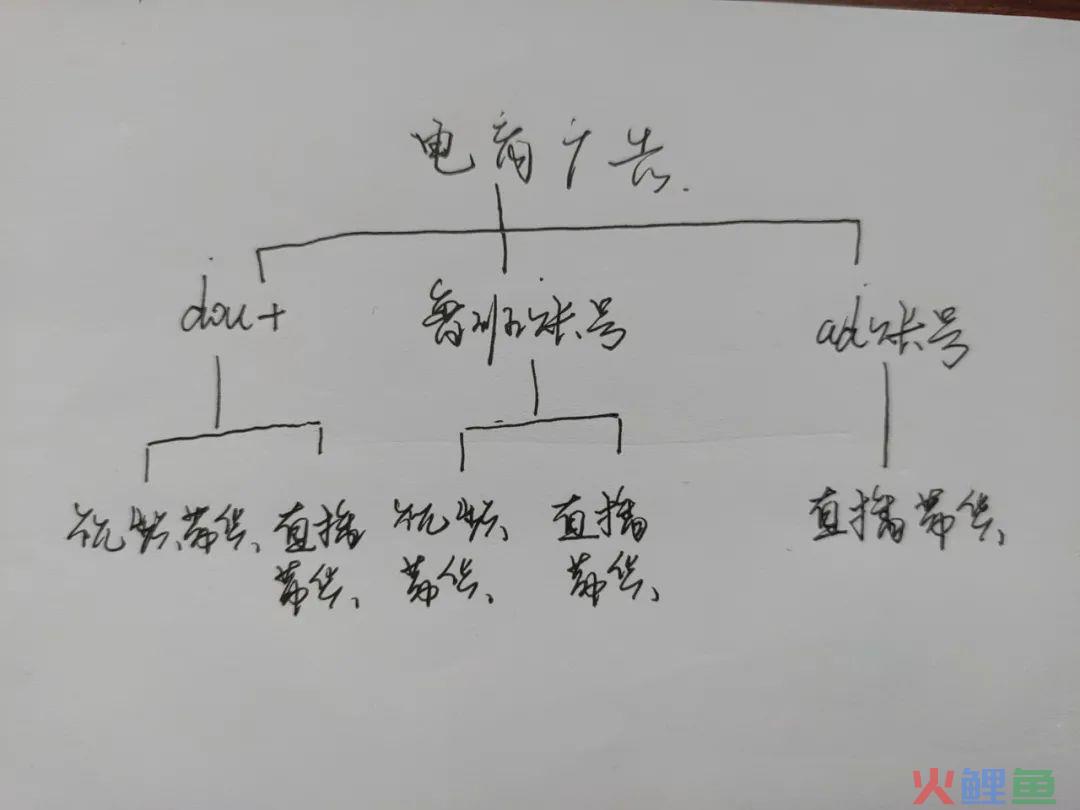 电商广告
dou+
鲁班账号
ad账号
视频带货
直播
带货
视频
带货
直播
带货
直播带货
火鲤鱼